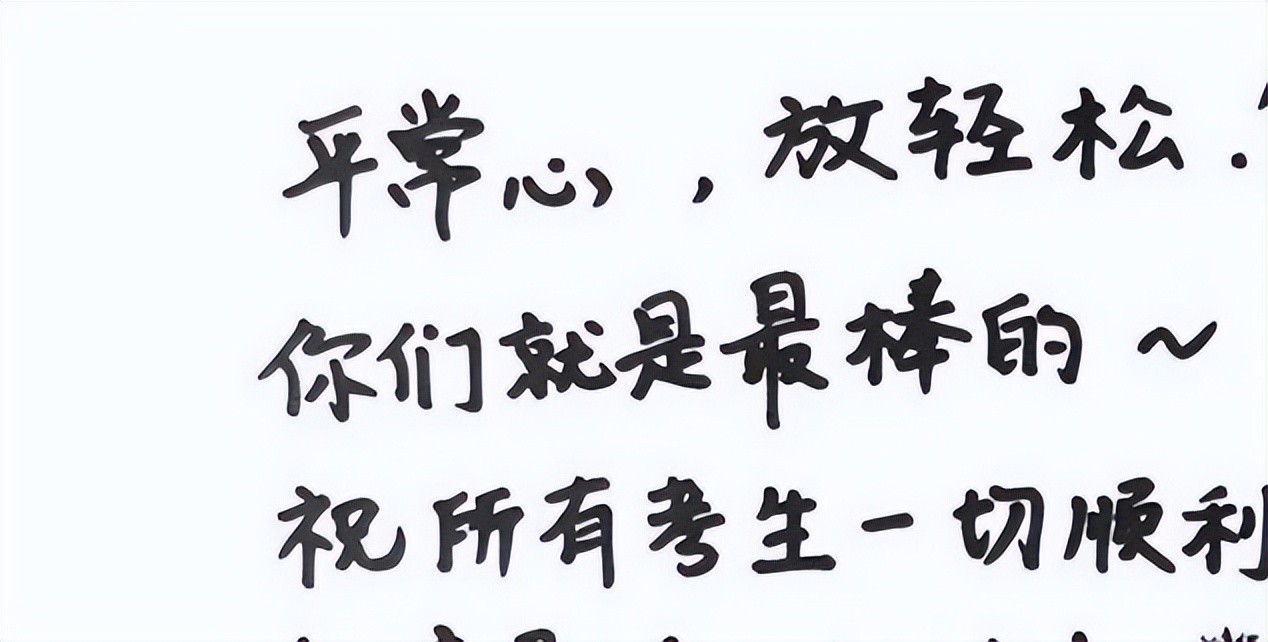 平常心，放轻松.
你们就是最棒的~
祝所有考生一切顺利